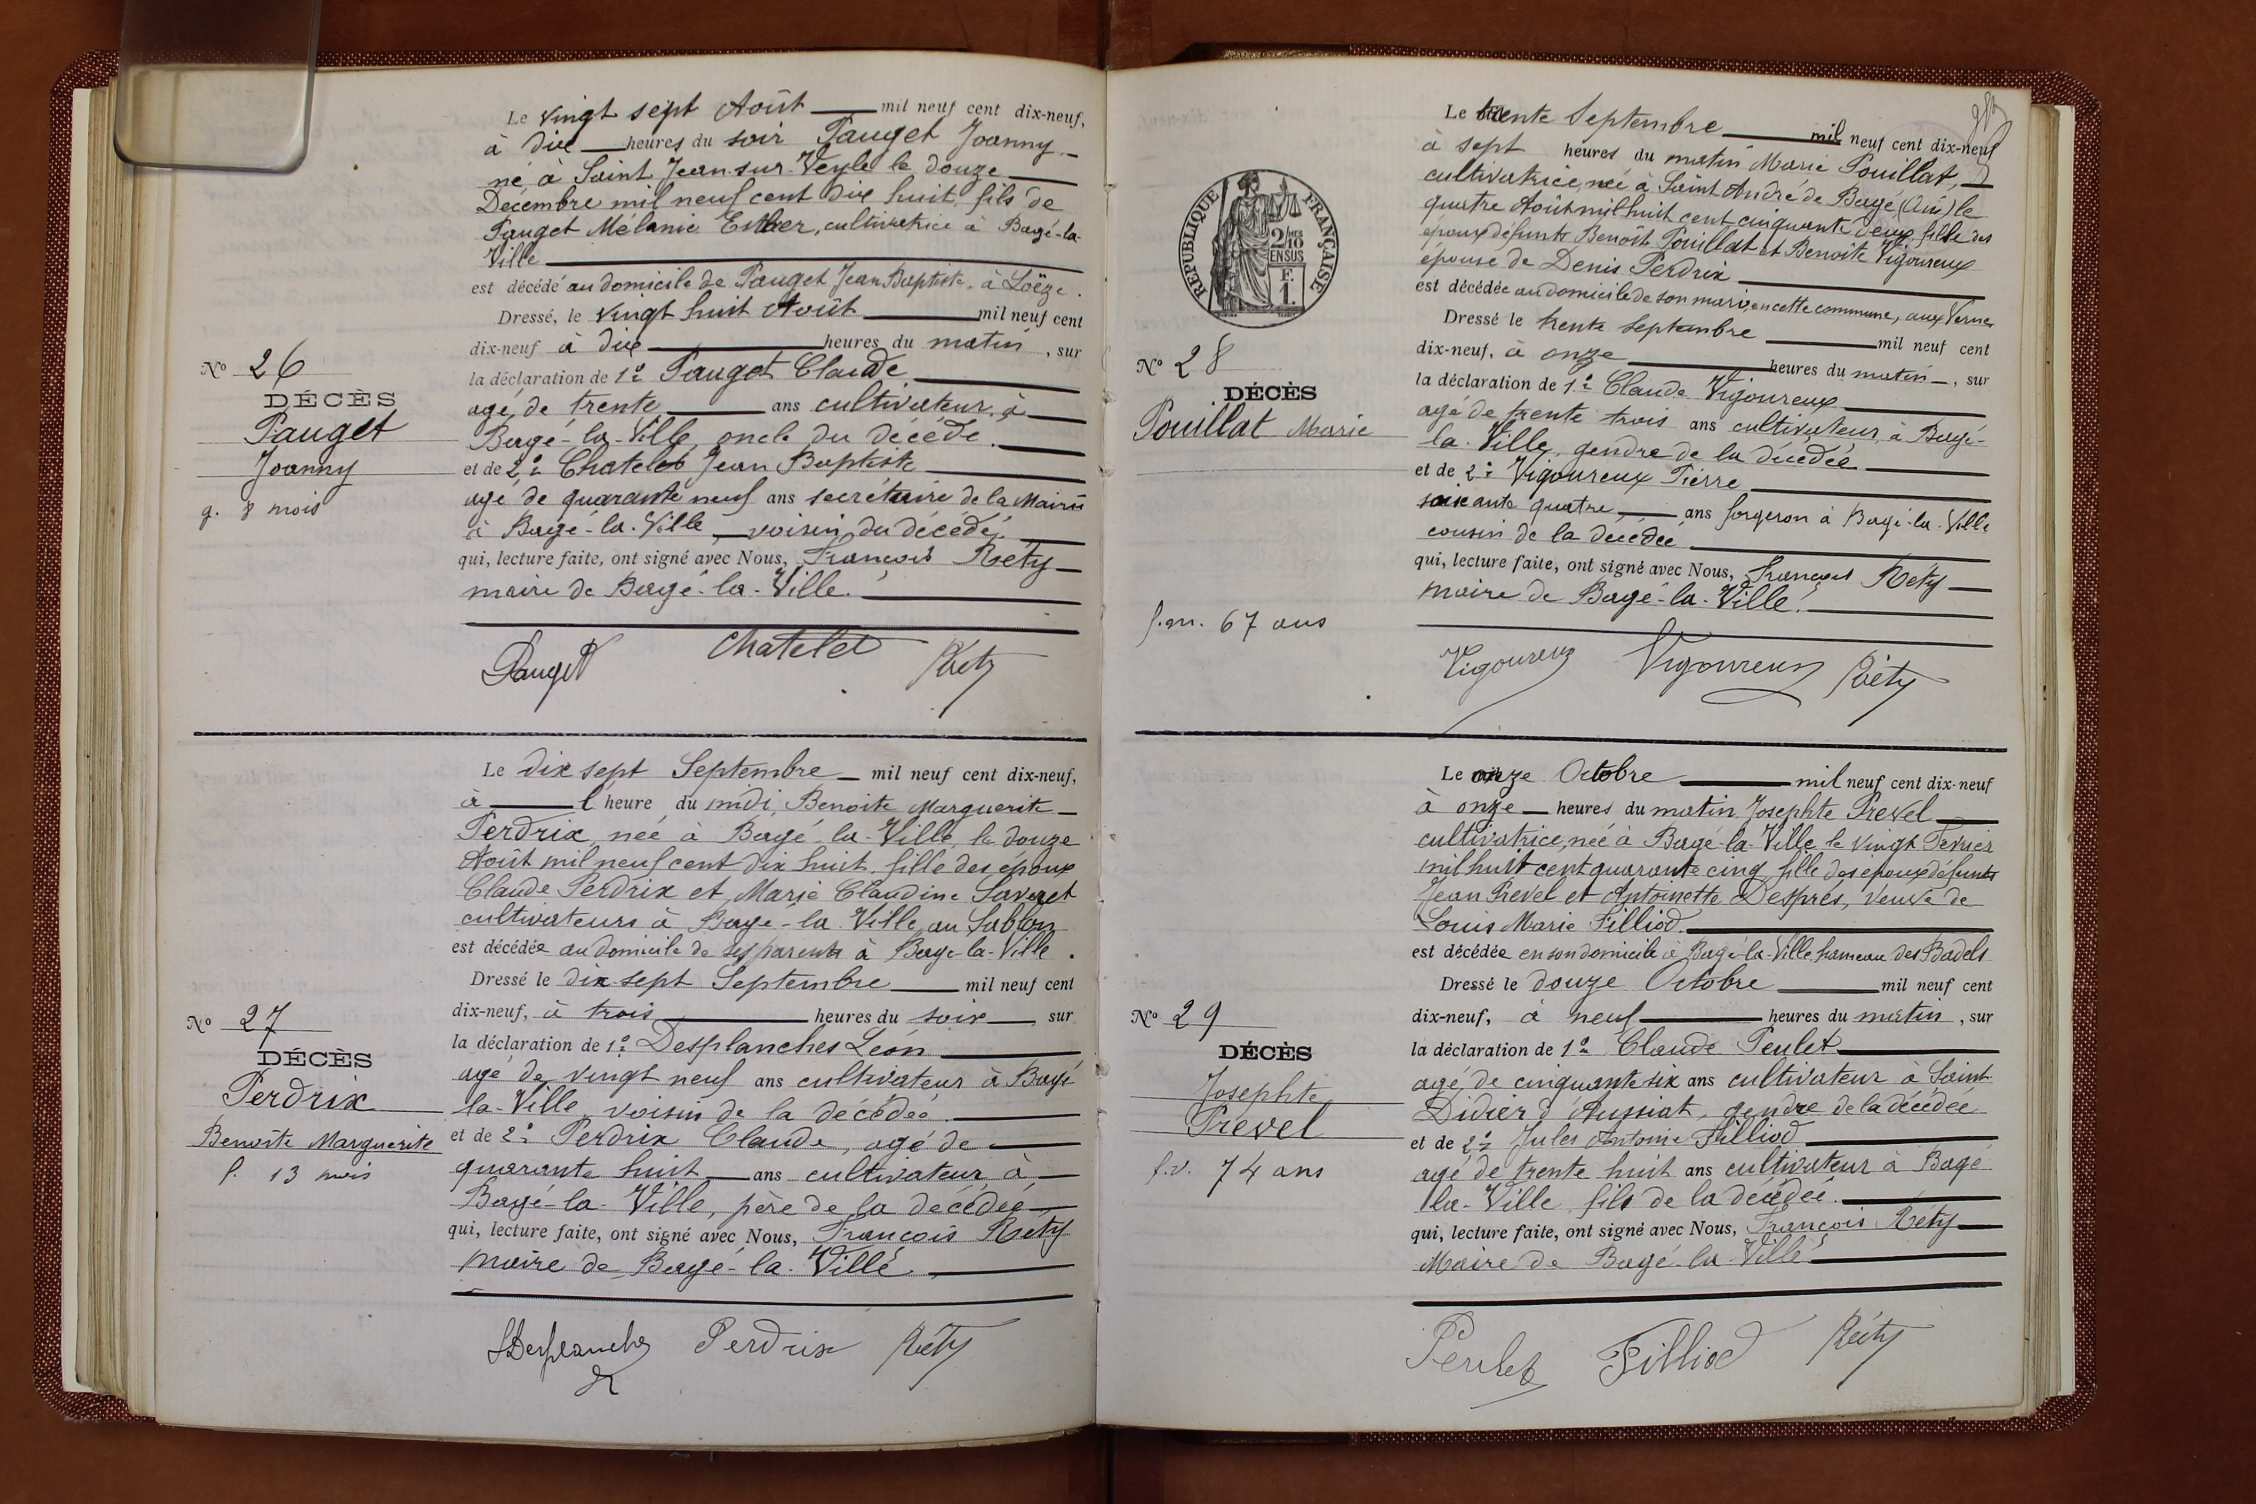 Le vingt sept Août mil neuf cent dix-neuf,
à dix heures du soir Pauget Joanny
né à Saint Jean-sur-Veyle le douze
Décembre mil neuf cent dix huit, fils de
Pauget Mélanie Esther, cultivatrice à Bagé-la-
Ville
est décédé au domicile de Pauget Jean Baptiste, à Loëze.
Dressé, le vingt huit Août mil neuf cent
dix-neuf à dix heures du matin, sur
la déclaration de 1º Pauget Claude
agé de trente ans cultivateur à
Bagé-la-Ville, oncle du décédé.
et de 2º Chatelet Jean Baptiste
agé de quarante neuf ans secrétaire de la Mairie
à Bagé-la-Ville voisin du décédé
qui, lecture faite, ont signé avec Nous, François Réty
maire de Bagé-la-Ville.
Nº 26
DÉCÈS
Pauget
Joanny
g. 8 mois
Pauget Chatelet Réty
Le dix sept Septembre mil neuf cent dix-neuf,
à l'heure du midi, Benoite Marguerite
Perdrix née à Bagé-la-Ville, le douze
Août mil neuf cent dix huit, fille des époux
Claude Perdrix et Marie Claudine Saveret
cultivateurs à Bagé-la-Ville au Sablon
est décédée au domicile de ses parents à Bagé-la-Ville.
Dressé le dix-sept Septembre mil neuf cent
dix-neuf, à trois heures du soir sur
la déclaration de 1º Desplanches Léon
agé de vingt neuf ans cultivateur à Bagé
la-Ville, voisin de la décédée.
et de 2º Perdrix Claude, agé de
quarante huit ans cultivateur à
Bagé-la-Ville, père de la décédée
qui, lecture faite, ont signé avec Nous, François Réty
maire de Bagé-la-Ville.
Nº 27
DÉCÈS
Perdrix
Benoite Marguerite
f. 13 mois
Desplanches Perdrix Réty
Le trente Septembre mil neuf cent dix-neuf
à sept heures du matin Marie Pouillat,
cultivatrice, née à Saint André de Bagé, (Ain) le
quatre Août mil huit cent cinquante deux, fille des
époux défunts Benoît Pouillat et Benoite Vigoureux
épouse de Denis Perdrix
est décédée au domicile de son mari, en cette commune, aux Vernes
Dressé le trente septembre mil neuf cent
dix-neuf, à onze heures du matin, sur
la déclaration de 1º Claude Vigoureux
agé de trente trois ans cultivateur à Bagé-
la-Ville, gendre de la décédée
et de 2º Vigoureux Pierre
soixante quatre ans forgeron à Bagé-la-Ville
cousin de la décédée
qui, lecture faite, ont signé avec Nous, François Réty
maire de Bagé-la-Ville.
RÉPUBLIQUE FRANÇAISE
2/10 EN SUS
F. 1.
Nº 28
DÉCÈS
Pouillat Marie
f.m. 67 ans
Vigoureux Vigoureux Réty
Le onze Octobre mil neuf cent dix-neuf
à onze heures du matin Josephte Prevel
cultivatrice, née à Bagé-la-Ville le vingt Fevrier
mil huit cent quarante cinq, fille des époux défunts
Jean Prevel et Antoinette Després, veuve de
Louis Marie Filliod.
est décédée en son domicile à Bagé-la-Ville hameau des Badels
Dressé le douze Octobre mil neuf cent
dix-neuf, à neuf heures du matin, sur
la déclaration de 1º Claude Peulet
agé de cinquante six ans cultivateur à Saint
Didier d'Aussiat, gendre de la décédée
et de 2º Jules Antoine Filliod
agé de trente huit ans cultivateur à Bagé
la-Ville fils de la décédée.
qui, lecture faite, ont signé avec Nous, François Réty
Maire de Bagé-la-Ville
Nº 29
DÉCÈS
Josephte
Prevel
f.v. 74 ans
Peulet Filliod Réty